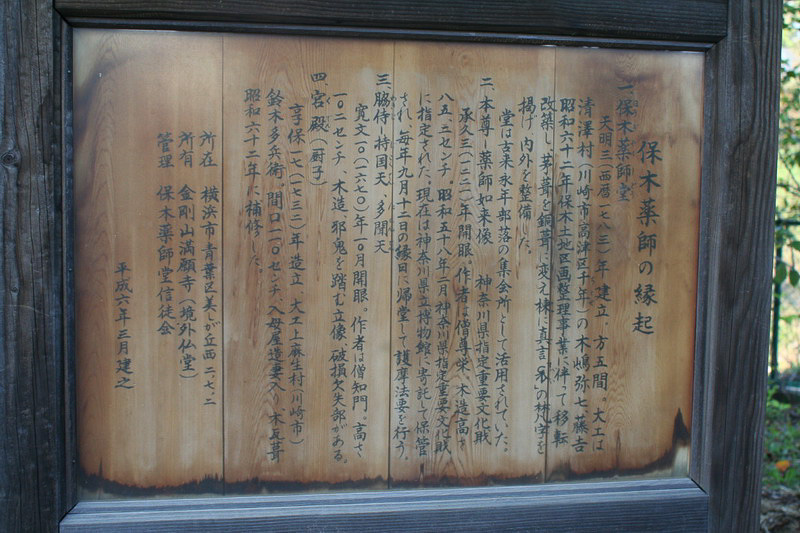 保木薬師の縁起
一、保木薬師堂
天明三(西暦一七八三)年建立、方五間。大工は
清澤村(川崎市高津区千年)の木嶋弥七藤吉
昭和六十二年保木土地区画整理事業に伴って移転
改築し、茅葺を銅葺に変え棟に真言「」の梵字を
揚げ、内外を整備した。
堂は古来永年部落の集会所として活用されていた。
二、本尊―薬師如来像 神奈川県指定重要文化財
承久三(一二二一)年開眼。作者は僧尊栄、木造高さ
八五、二センチ。昭和五十八年二月神奈川県指定重要文化財
に指定された、現在は神奈川県立博物館に寄託して保管
され、毎年九月十二日の縁日に帰堂して護摩法要を行う。
三、脇侍―持国天、多聞天
寛文一〇(一六七〇)年一〇月開眼。作者は僧知門。高さ
一〇二センチ、木造、邪鬼を踏む立像、破損欠失部がある。
四、宮殿(厨子)
享保一七(一七三二)年造立 大工上麻生村(川崎市)
鈴木多兵衛、間口一一〇センチ、入母屋造妻入り、木瓦葺
昭和六十二年に補修した。
所在 横浜市青葉区美しが丘西二、七、二
所有 金剛山満願寺(境外仏堂)
管理 保木薬師堂信徒会
平成六年三月建之